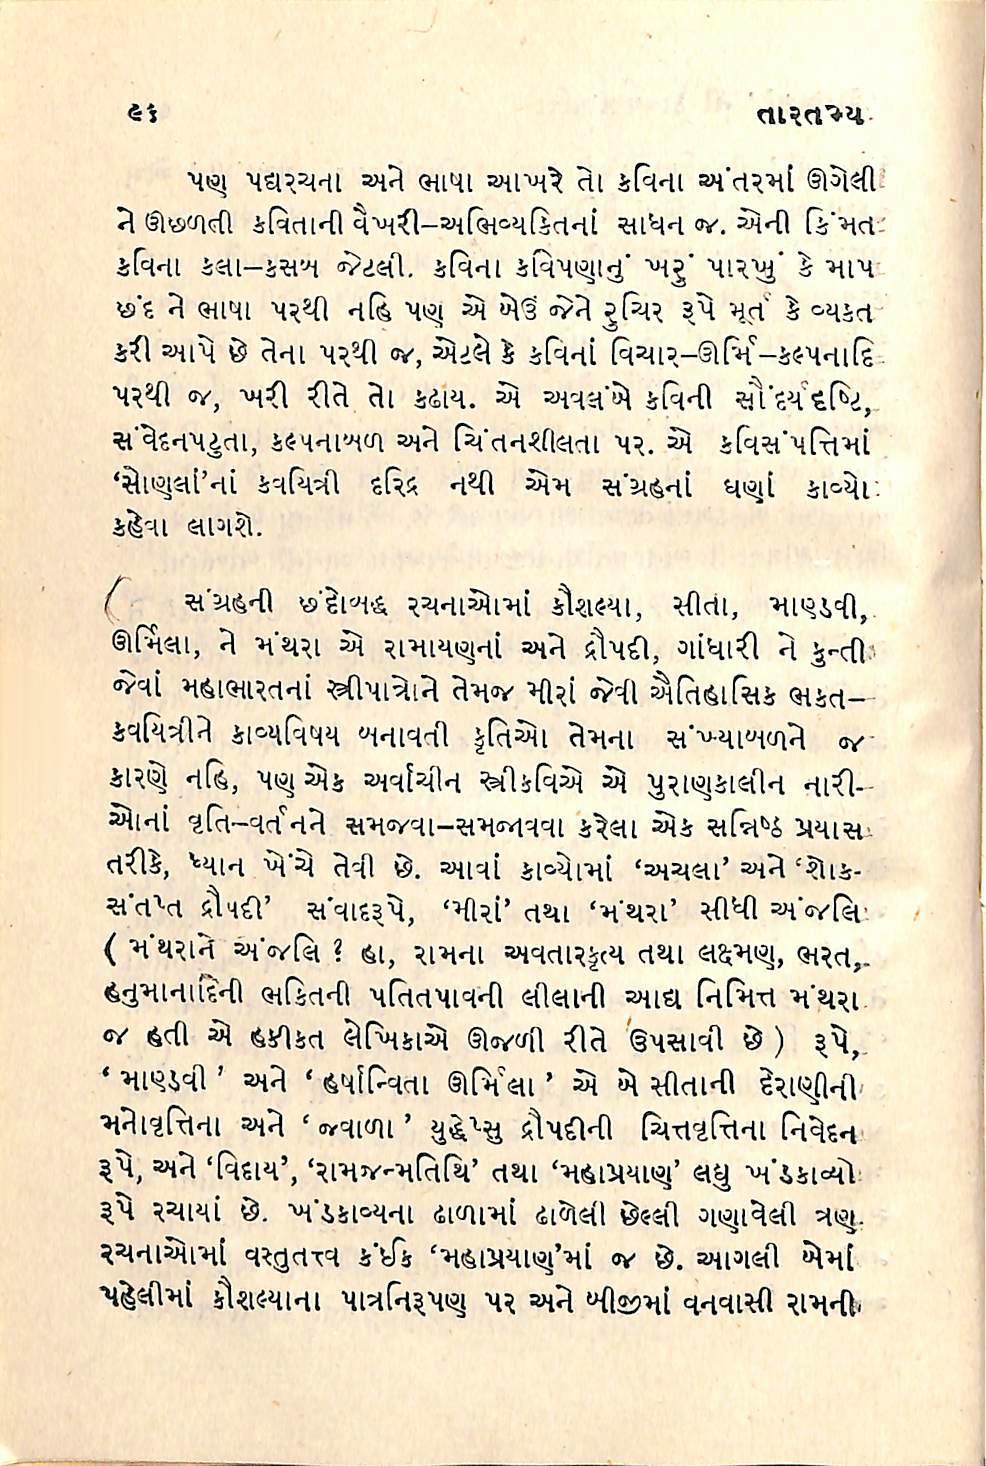 ૯૬ તારતમ્ય
પણ પદ્યરચના અને ભાષા આખરે તો કવિના અંતરમાં ઊગેલી
ને ઊછળતી કવિતાની વૈખરી–અભિવ્યક્તિનાં સાધન જ. એની કિંમત
કવિના કલા–કસબ જેટલી. કવિના કવિપણાનું ખરું પારખું કે માપ
છંદ ને ભાષા પરથી નહિ પણ એ બેઉ જેને રુચિર રૂપે મૂર્ત કે વ્યક્ત
કરી આપે છે તેના પરથી જ, એટલે કે કવિનાં વિચાર–ઊર્મિ–કલ્પનાદિ
પરથી જ, ખરી રીતે તો કઢાય. એ અવલંબે કવિની સૌંદર્યદૃષ્ટિ,
સંવેદનપટુતા, કલ્પનાબળ અને ચિંતનશીલતા પર. એ કવિસંપત્તિમાં
‘સોણલાં’નાં કવયિત્રી દરિદ્ર નથી એમ સંગ્રહનાં ઘણાં કાવ્યો
કહેવા લાગશે.
સંગ્રહની છંદોબદ્ધ રચનાઓમાં કૌશલ્યા, સીતા, માણ્ડવી,
ઊર્મિલા, ને મંથરા એ રામાયણનાં અને દ્રૌપદી, ગાંધારી ને કુન્તી
જેવાં મહાભારતનાં સ્ત્રીપાત્રોને તેમજ મીરાં જેવી ઐતિહાસિક ભક્ત–
કવયિત્રીને કાવ્યવિષય બનાવતી કૃતિઓ તેમના સંખ્યાબળને જ
કારણે નહિ, પણ એક અર્વાચીન સ્ત્રીકવિએ એ પુરાણકાલીન નારી-
ઓનાં વૃતિ–વર્તનને સમજવા–સમજાવવા કરેલા એક સન્નિષ્ઠ પ્રયાસ
તરીકે, ધ્યાન ખેંચે તેવી છે. આવાં કાવ્યોમાં ‘અચલા’ અને ‘શોક-
સંતપ્ત દ્રૌપદી’ સંવાદરૂપે, ‘મીરાં’ તથા ‘મંથરા’ સીધી અંજલિ
( મંથરાને અંજલિ ? હા, રામના અવતારકૃત્ય તથા લક્ષ્મણ, ભરત,
હનુમાનાદિની ભક્તિની પતિતપાવની લીલાની આદ્ય નિમિત્ત મંથરા
જ હતી એ હકીકત લેખિકાએ ઊજળી રીતે ઉપસાવી છે ) રૂપે,
‘ માણ્ડવી ’ અને ‘ હર્ષાન્વિતા ઊર્મિલા ’ એ બે સીતાની દેરાણીની
મનોવૃત્તિના અને ‘ જ્વાળા ’ યુદ્ધેપ્સુ દ્રૌપદીની ચિત્તવૃત્તિના નિવેદન
રૂપે, અને ‘વિદાય’, ‘રામજન્મતિથિ’ તથા ‘મહાપ્રયાણ’ લઘુ ખંડકાવ્યો
રૂપે રચાયાં છે. ખંડકાવ્યના ઢાળામાં ઢાળેલી છેલ્લી ગણાવેલી ત્રણ
રચનાઓમાં વસ્તુતત્ત્વ કંઈક ‘મહાપ્રયાણ’માં જ છે. આગલી બેમાં
પહેલીમાં કૌશલ્યાના પાત્રનિરૂપણ પર અને બીજીમાં વનવાસી રામની